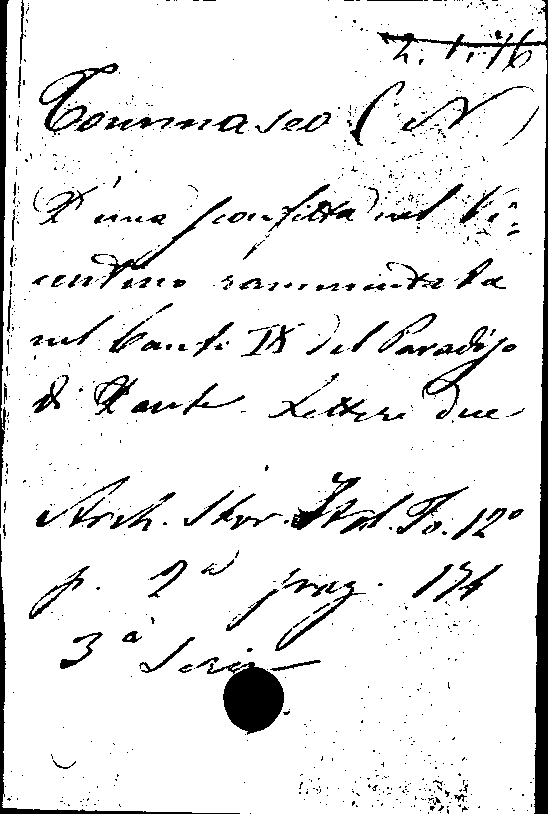 2. 1. 76
Tommaseo (N)
D'una sconfitta nel Vi=
centino rammentata
nel Canto IX del Paradiso
di Dante. Lettere due
Arch. Stor. Ital. To. 12°
p. 2ª pag. 174
3ª Serie